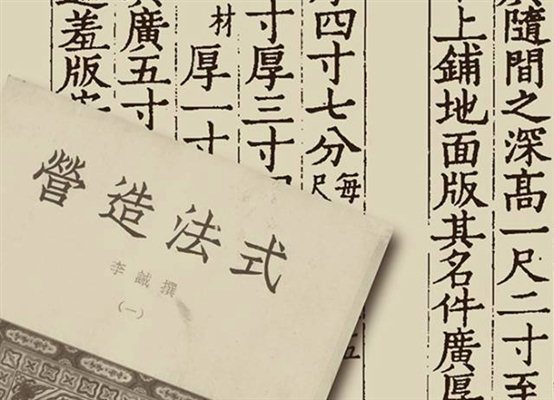 廣隨間之深高一尺二寸至
上鋪地面版其名件廣厚
四寸七分每尺
五
寸厚三寸
材
厚一寸
廣五寸
造羞版
營造法式
李誡撰
（一）